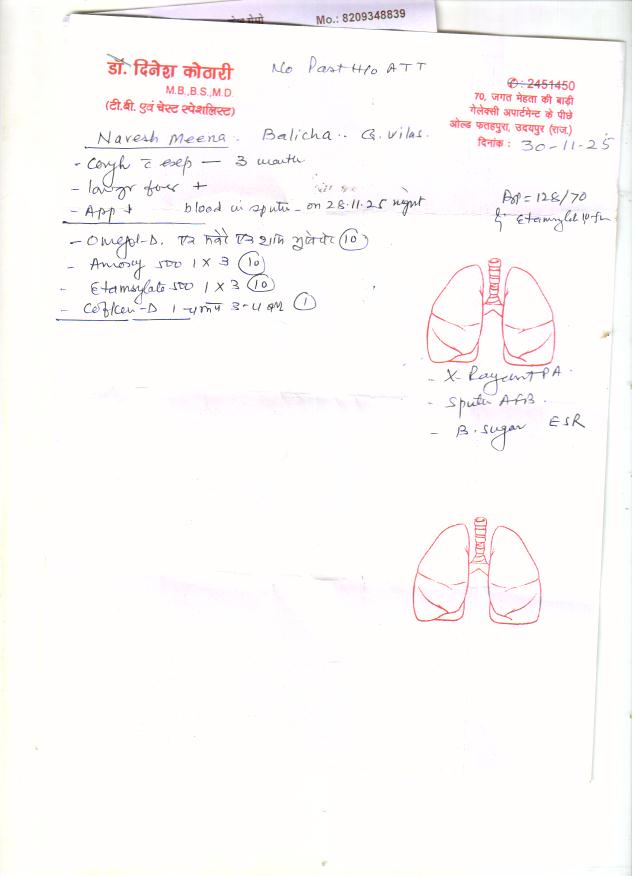 Mo.: 8209348839
डॉ. दिनेश कोठारी
M.B.,B.S.,M.D.
(टी.बी. एवं चेस्ट स्पेशलिस्ट)
No Past H/o ATT
✆: 2451450
70, जगत मेहता की बाड़ी
गेलेक्सी अपार्टमेन्ट के पीछे
ओल्ड फतहपुरा, उदयपुर (राज.)
दिनांक : 30-11-25
Naresh Meena. Balicha.. G. Vilas.
- Cough c exep — 3 month
- fever +
- App + blood in sputu - on 28.11.25 night
BP = 128/70
- Omepl-D. एक सवेरे एक शाम (10)
- Amoxy 500 1 X 3 (10)
- Etamsylate 500 1 X 3 (10)
- 1 चम्मच 3-4 बार (1)
- X-Ray PA.
- Sputu AFB.
- B. Sugar ESR